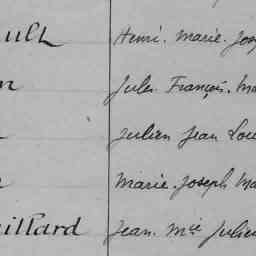 ault Henri. Marie. Jos
n Jules François. Ma
Julien Jean Lou
Marie. Joseph Ma
illard Jean. Mie Julien